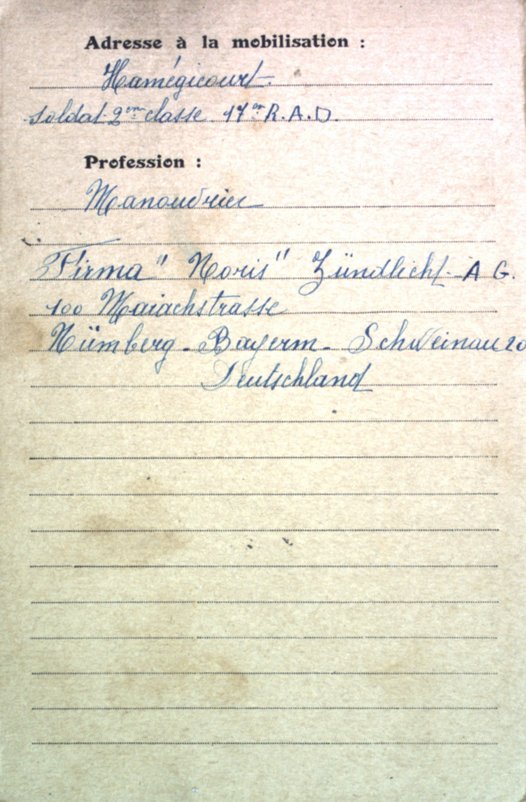 Adresse à la mobilisation :
Hamégicourt
Soldat 2em classe 17em R.A.D.
Profession :
Manoudrier
Firma "Noris" Zündlicht - A G.
100 Maiachstrasse
Nümberg - Bayerm - Schweinau 20
Deutschland